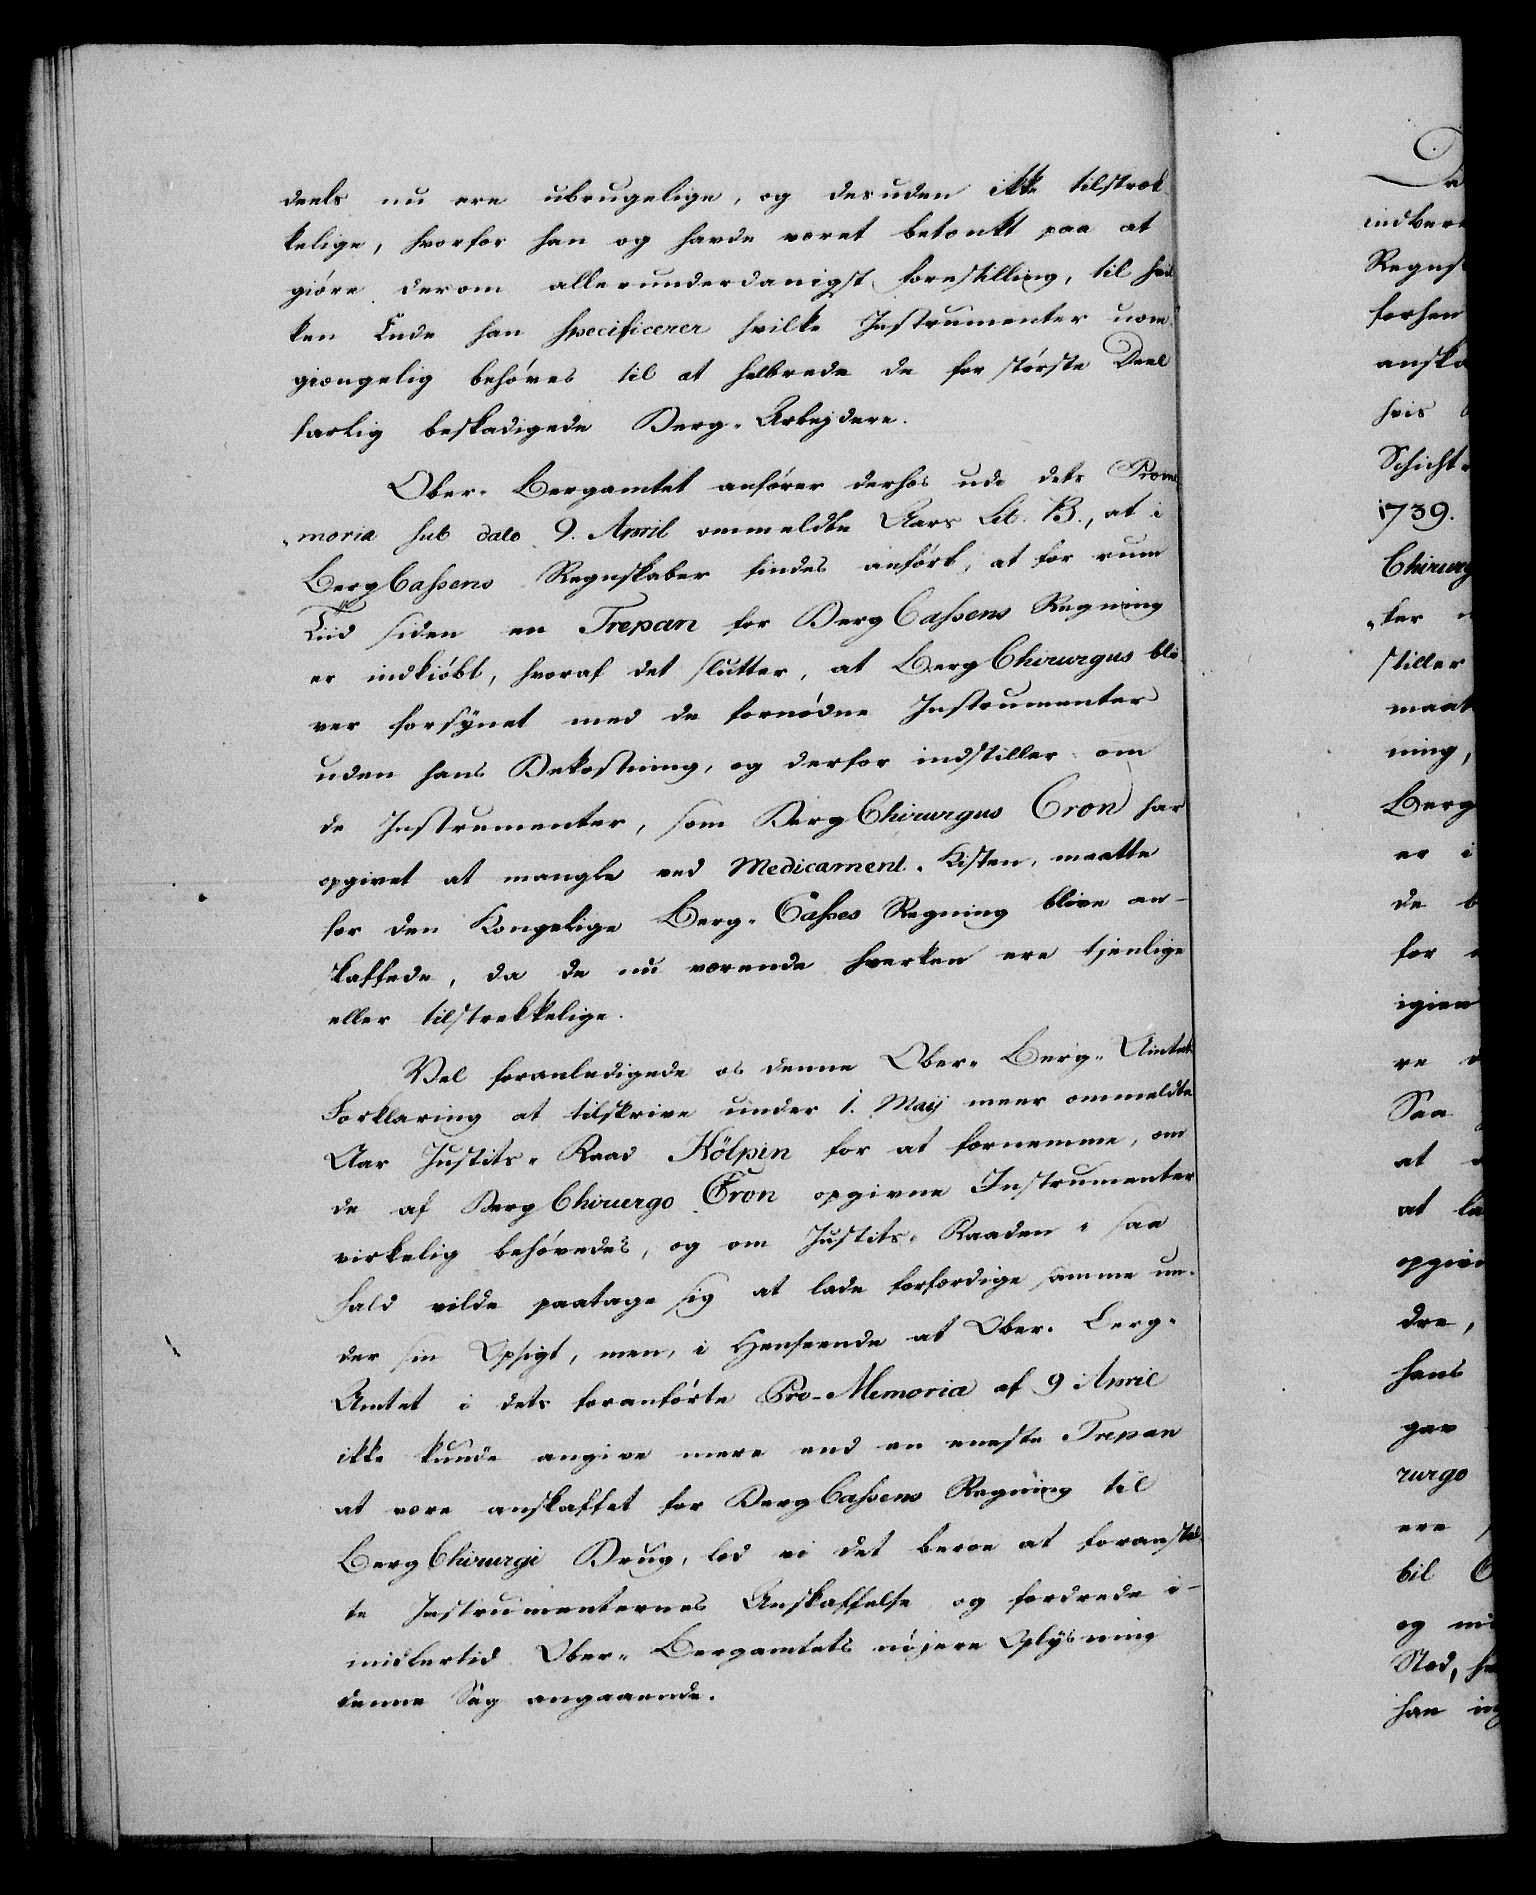 deels nu ere ubrugelige, og desuden ikke tilstræk
kelige, hvorfor han og havde været betænkt paa at
giöre derom allerunderdanigst forestilling, til hvil
ken Ende han specificerer hvilke Instrumenter uom¬
giængelig behöves til at helbrede de for störste Deel
farlig beskadigede Berg-Arbejdere.
Ober-Bergamtet anförer derhos udi dets Prome
„moria sub dato 9. April ommeldte Aars Lit. B., at i
BergCassens Regnskaber findes anfört, at for rum
Tiid siden en Trepan for BergCassens Regning
er indkiöbt, hvoraf det slutter, at BergChirurgus bli
ver forsÿnet med de fornödne Instrumenter
uden hans Bekostning, og derfor indstiller om
de Instrumenter, som BergChirurgus Cron har
opgivet at mangle ved Medicament-Kisten, maatte
for den Kongelige Berg-Casses Regning blive an-
skaffede, da de nu værende hverken ere tjenlige
eller tilstrekkelige.
Vel foranledigede os denne Ober-Berg-Amtets
Forklaring at tilskrive under 1. Maÿ meer ommeldte
Aar Justits-Raad Kölpin for at fornemme, om
de af BergChirurgo Cron opgivne Instrumenter
virkelig behövedes, og om Justits-Raaden i saa
fald vilde paatage sig at lade forfærdige samme un-
der sin Opsigt, men, i Henseende at Ober-Berg-
Amtet i dets foranförte Pro-Memoria af 9 April
ikke kunde angive mere end en eneste Trepan
at være anskaffet for BergCassens Regning til
BergChirurgi Brug, lod vi det beroe at foranstal
te Instrumenternes Anskaffelse og fordrede i-
midlertid Ober-Bergamtets nöjere Oplÿsning
denne Sag angaaende.
Da
indbere
Regns
forhen
anska
hvis
Schicht-
1739.
Chirurg
„ker
stiller
maat
ning,
Berg
er i
de b
for
igien
re
Saa
at
at la
opgiv
dre,
hans
gav
rurgo
ere
bil
og ni
Sted, h
han in